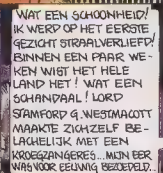 WAT EEN SCHOONHEID!
IK WERD OP HET EERSTE
GEZICHT STRAALVERLIEFD!
BINNEN EEN PAAR WE-
KEN WIST HET HELE
LAND HET! WAT EEN
SCHANDAAL! LORD
STAMFORD G. WESTMACOTT
MAAKTE ZICHZELF BE-
LACHELIJK MET EEN
KROEGZANGERES... MIJN EER
WAS VOOR EEUWIG BEZOEDELD...